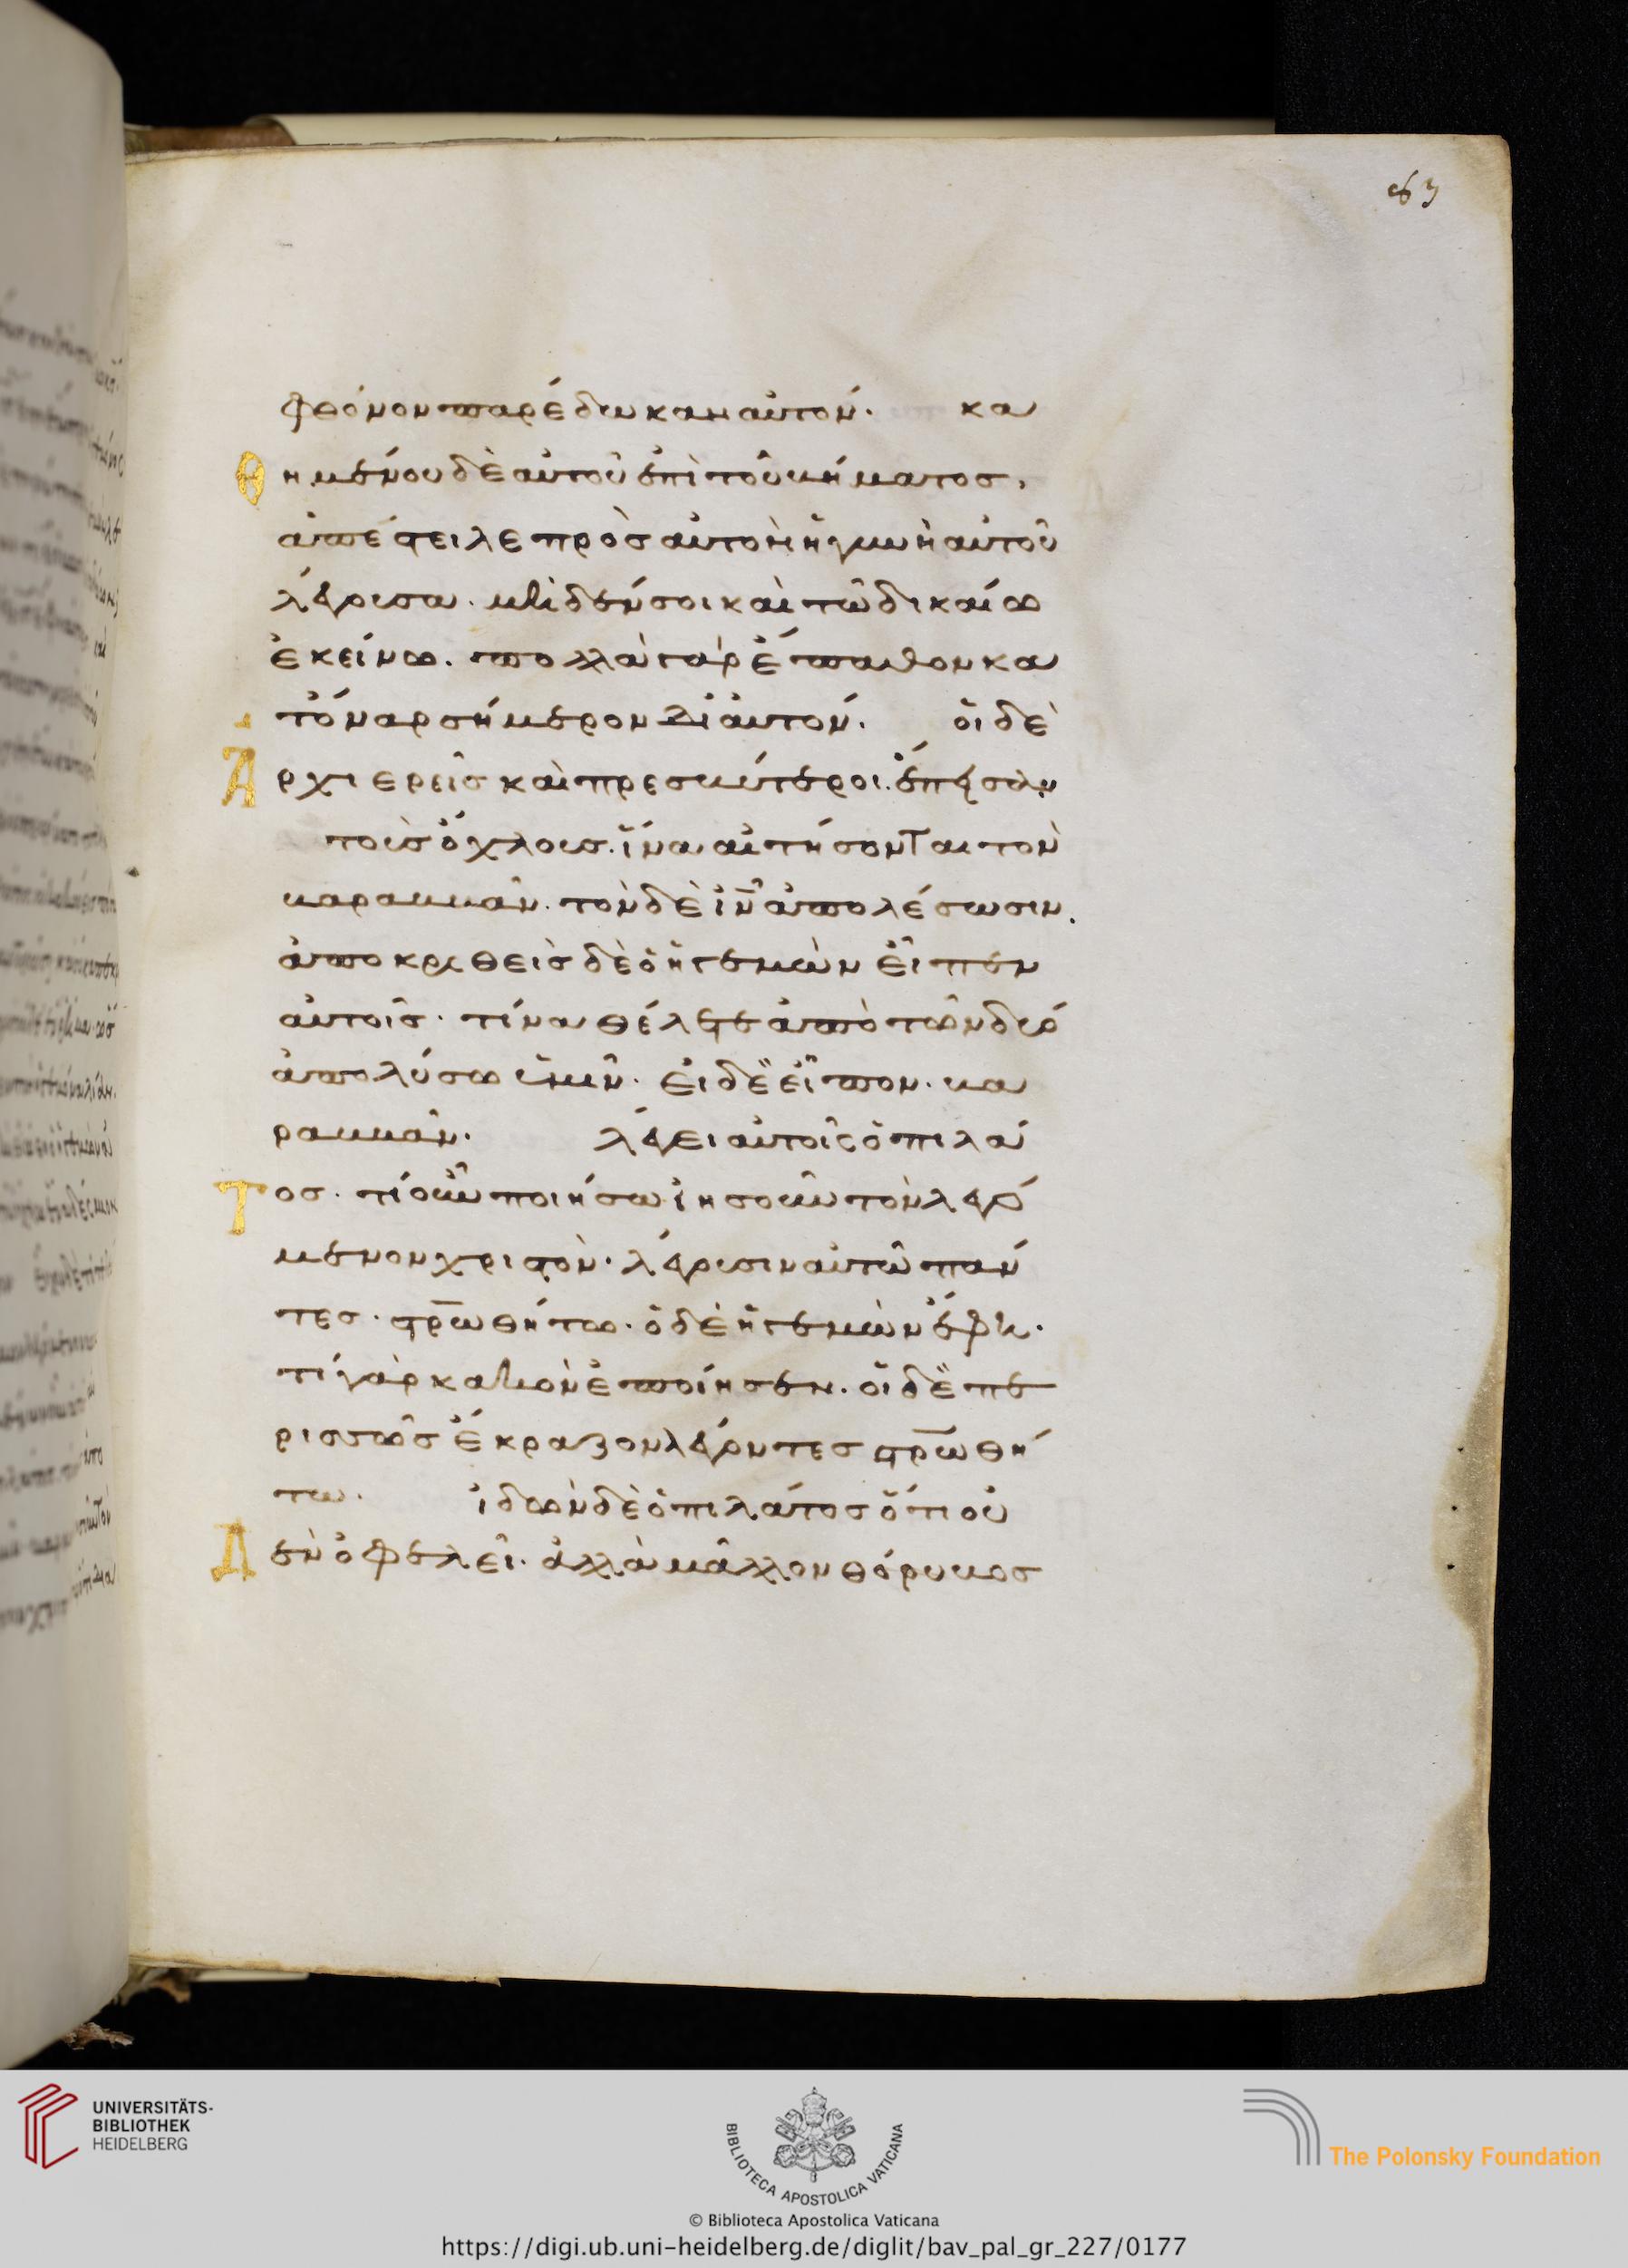 63
φθόνον παρέδωκαν αὐτόν. κα
θημένου δὲ αὐτοῦ ἐπὶ τοῦ βήματος,
ἀπέστειλε πρὸς αὐτὸν ἡ γυνὴ αὐτοῦ
λέγουσα. μηδέν σοι καὶ τῶ δικαίω
ἐκείνω. πολλὰ γὰρ ἔπαθον κα
τ' ὄναρ σήμερον δι' αὐτόν. οἱ δὲ
Ἀρχιερεῖς καὶ πρεσβύτεροι. ἔπεισαν
τοὺς ὄχλους. ἵνα αἰτήσονται τὸν
βαραββᾶν. τὸν δὲ ἰν ἀπολέσωσιν.
ἀποκριθεὶς δὲ ὁ ἡγεμὼν εἶπεν
αὐτοῖς. τίνα θέλετε ἀπὸ τῶν δύο
ἀπολύσω ὑμῖν. εἱ δὲ εἶπον. βα
ραββᾶν. λέγει αὐτοῖς ὁ πιλά
Τος. τί οὖν ποιήσω ἰησοῦν τὸν λεγό
μενον χριστὸν. λέγουσιν αὐτῶ πάν
τες. στρωθήτω. ὁ δὲ ἡγεμὼν ἔφη.
τί γὰρ κακὸν ἐποίησεν. οἱ δὲ πε
ρισσῶς ἔκραζον λέγοντες στρωθή
τω. ἰδὼν δὲ ὁ πιλάτος ὅτι οὐ
Δὲν ὀφελεῖ. ἀλλὰ μᾶλλον θόρυβος
UNIVERSITÄTS-
BIBLIOTHEK
HEIDELBERG
BIBLIOTECA APOSTOLICA VATICANA
The Polonsky Foundation
© Biblioteca Apostolica Vaticana
https://digi.ub.uni-heidelberg.de/diglit/bav_pal_gr_227/0177